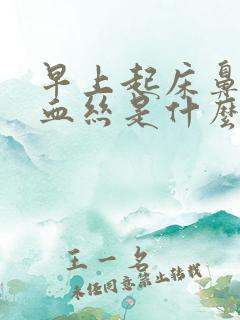 早上起床鼻
血丝是什麼
王一名
未经同意禁止转载